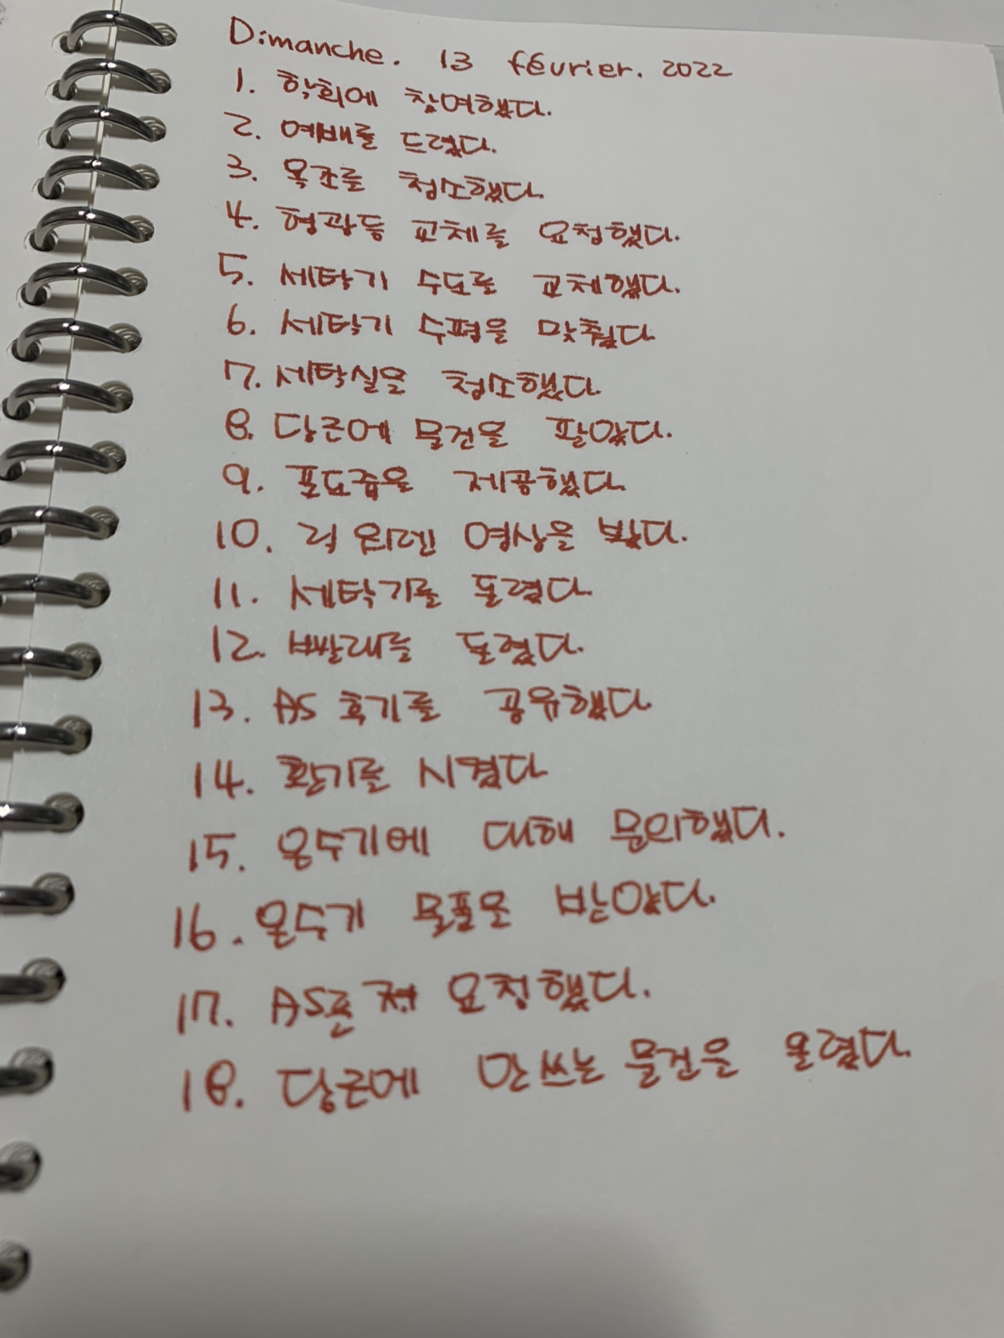 Dimanche. 13 février. 2022
1. 학회에 참여했다.
2. 예배를 드렸다.
3. 욕조를 청소했다.
4. 형광등 교체를 요청했다.
5. 세탁기 수도를 교체했다.
6. 세탁기 수평을 맞췄다
7. 세탁실을 청소했다.
8. 당근에 물건을 팔았다.
9. 포도즙을 제공했다.
10. 영상을 봤다.
11. 세탁기를 돌렸다
12. 빨래를 돌렸다.
13. AS 후기를 공유했다
14. 환기를 시켰다
15. 온수기에 대해 문의했다.
16. 온수기 물품을 받았다.
17. AS를 요청했다.
18. 당근에 안쓰는 물건을 올렸다.